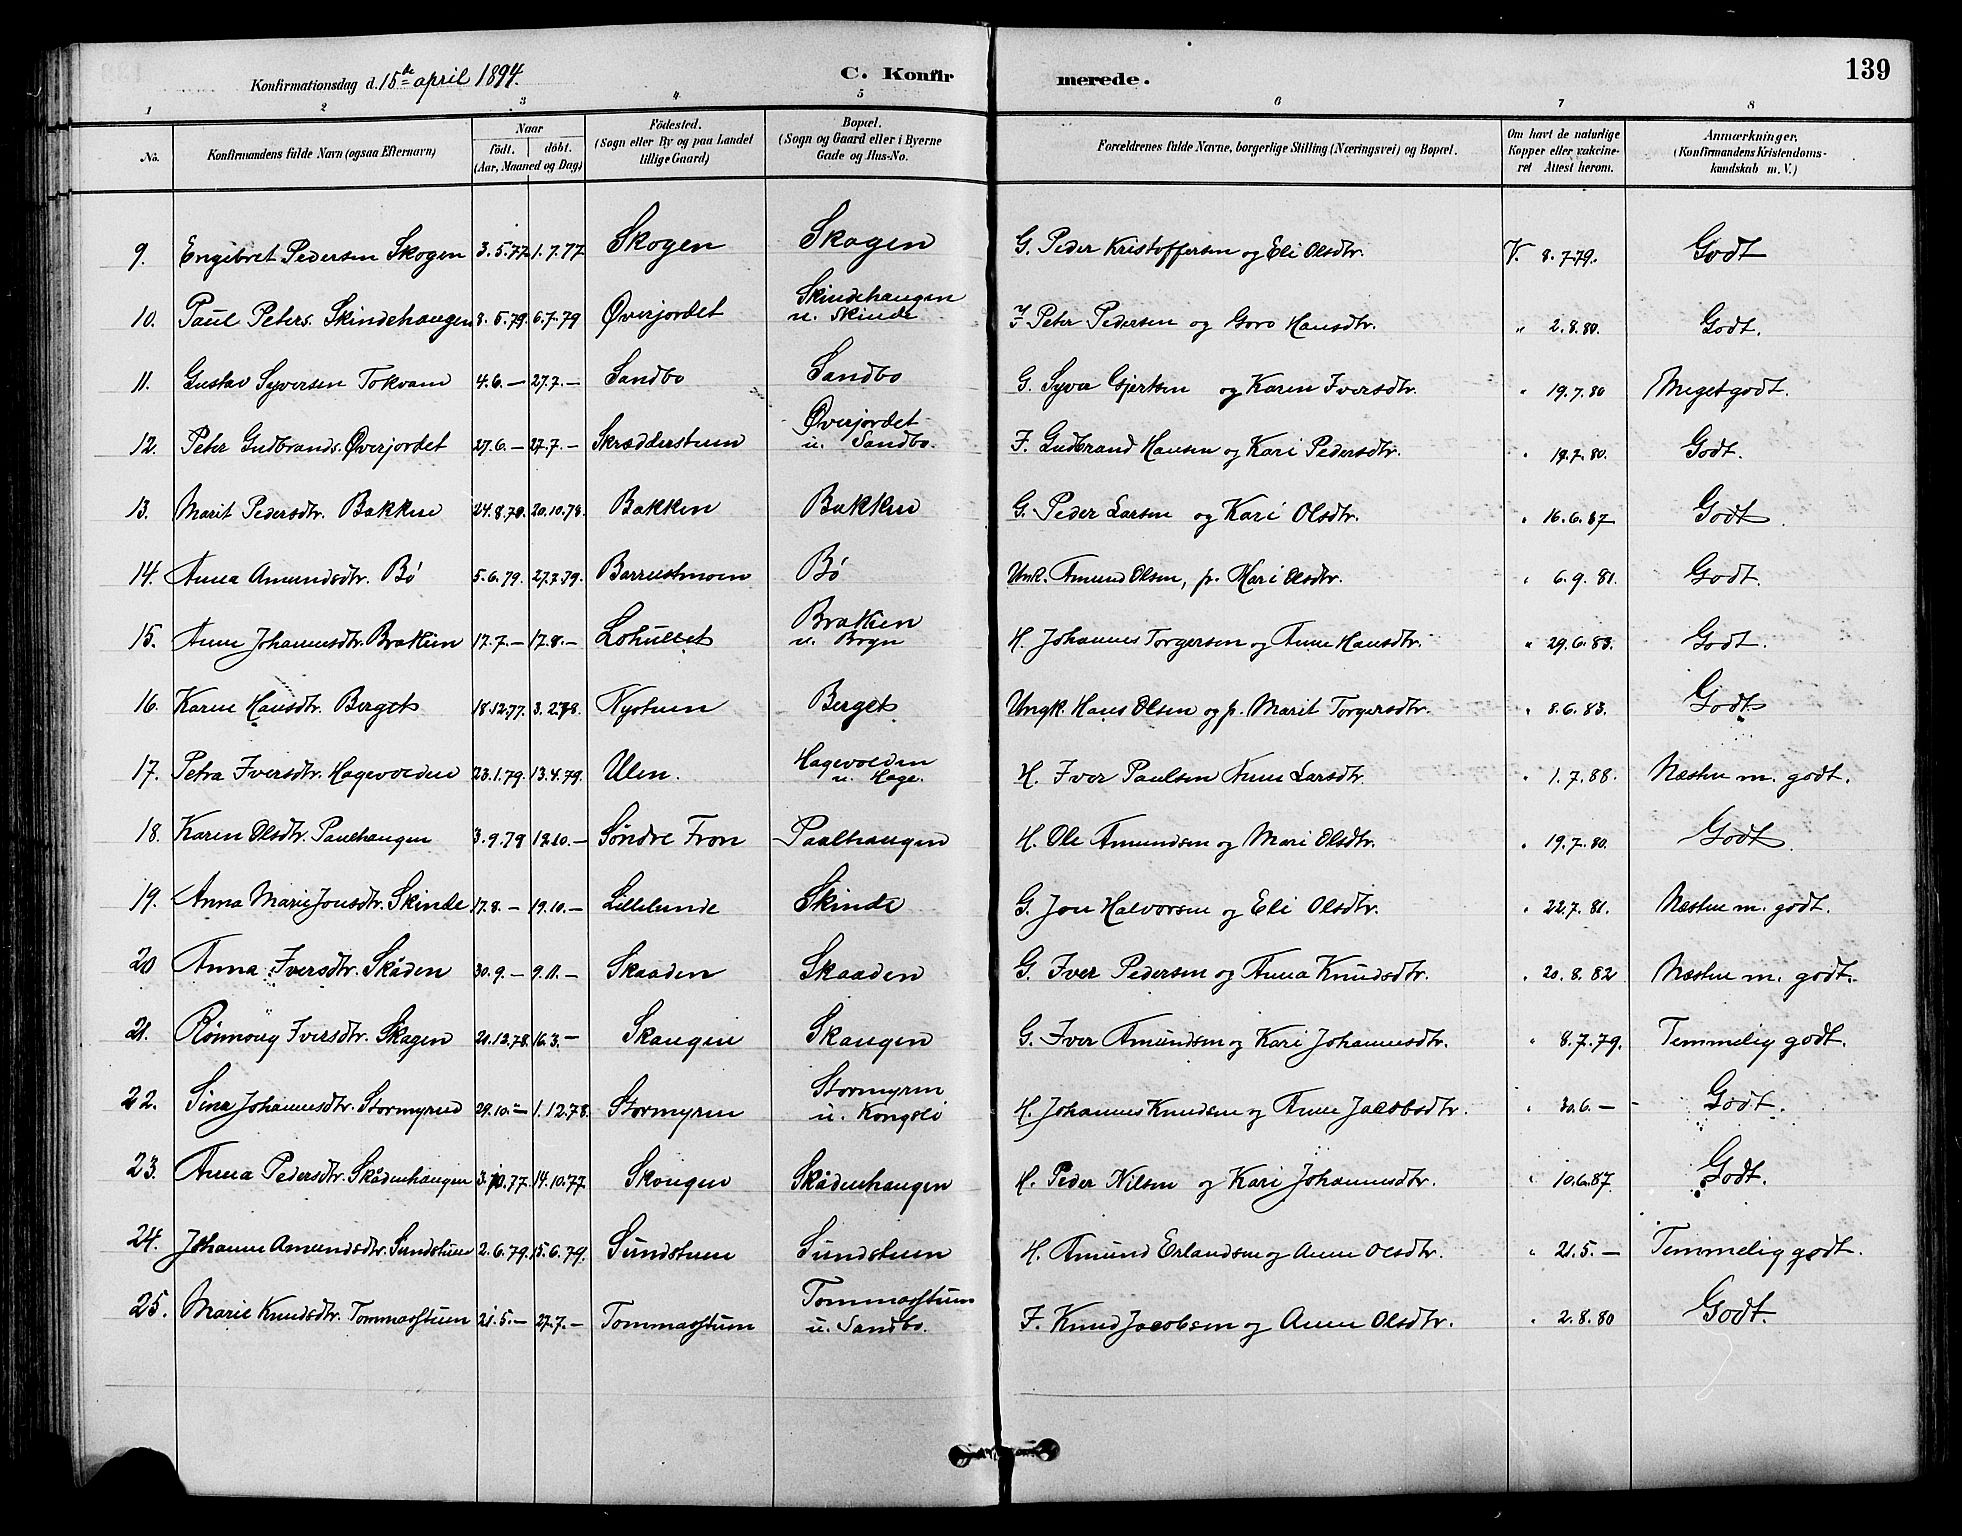 Konfirmationsdag d. 15de april 1894.
C. Konfir merede. 139
1 2 3 4 5 6 7 8
No. Konfirmandens fulde Navn (ogsaa Efternavn) Naar födt. döbt. (Aar, Maaned og Dag) Födested. (Sogn eller By og paa Landet tillige Gaard) Bopæl. (Sogn og Gaard eller i Byerne Gade og Hus-No. Forældrenes fulde Navne, borgerlige Stilling (Næringsvei) og Bopæl. Om havt de naturlige Kopper eller vakcineret Attest herom. Anmærkninger. (Konfirmandens Kristendomskundskab m. V.)
9. Engebret Pedersen Skogen 3.5.77 1.7.77 Skogen Skogen G. Peder Kristoffersen og Eli Olsdtr. V. 8.7.79. Godt
10. Paul Peters. Skindehaugen 8.5.79. 6.7.79 Øverjordet Skindehaugen u. Skinde F Peter Pedersen og Goro Hansdtr. " 2.8.80. Godt.
11. Gustav Syversen Tokvam 4.6.— 27.7.— Sandbo Sandbo G. Syver Gjertsen og Karen Iversdtr. " 19.7.80 Meget godt.
12. Peter Gudbrands. Øverjordet 27.6.— 27.7.— Skrædderstuen Øverjordet u. Sandbo. F. Gudbrand Hansen og Kari Pedersdtr. " 19.7.80. Godt.
13. Marit Pedersdtr. Bakken 24.8.78. 20.10.78. Bakken Bakken G. Peder Larsen og Kari Olsdtr. " 16.6.87 Godt.
14. Anna Amundsdtr. Bø 5.6.79. 27.7.79. Bø Unk. Amund Olsen, p. Mari Olsdtr. " 6.9.81. Godt.
15. Anne Johannesdtr. Brakken 17.7.— 17.8.— Lohullet Brakken u. H. Johannes Torgersen og Anne Hansdtr. " 29.6.83. Godt.
16. Karen Hansdtr. Berget 18.12.77. 3.2.78. Nystuen Berget Ungk. Hans Olsen og p. Marit Torgersdtr. " 8.6.83. Godt.
17. Petra Iversdtr. Hagevolden 23.1.79. 13.4.79. Ulen. Hagevolden u. Hage. H. Iver Paulsen Anne Larsdtr. " 1.7.88. Næsten m. godt.
18. Karen Olsdtr. Paulhaugen 3.9.79 12.10.— Søndre Fron Paalhaugen H. Ole Amundsen og Mari Olsdtr. " 19.7.80. Godt.
19. Anna Marie Jonsdtr. Skinde 17.8.— 19.10.— Lillelunde Skinde G. Jon Halvorsen og Eli Olsdtr. " 22.7.81. Næsten m. godt.
20 Anna Iversdtr. Skåden 30.9.— 9.11.— Skaaden Skaaden G. Iver Pedersen og Anna Knudsdtr. " 20.8.82 Næsten m. godt.
21. Rønnoug Iversdtr. Skagen 21.12.78. 16.3.— Skaugen Skaugen G. Iver Amundsen og Kari Johannesdtr. " 8.7.79. Temmelig godt.
22. Sina Johannesdtr. Stormyren 29.10.— 1.12.78. Stormyren Stormyren u. Kongsli H. Johannes Knudsen og Anne Jacobsdtr. " 30.6.— Godt.
23. Anna Pedersdtr. Skådenhaugen 3.10.77. 14.10.77 Skougen Skådenhaugen H. Peder Nilsen og Kari Johannesdtr. " 10.6.87. Godt.
24. Johanne Amundsdtr. Sundstuen 2.6.79. 15.6.79. Sundstuen Sundstuen H. Amund Erlandsen og Anne Olsdtr. " 21.5.— Temmelig godt.
25. Marie Knudsdtr. Tommasstuen 21.5.— 27.7.— Tommasstuen Tommasstuen u. Sandbo. F. Knud Jacobsen og Anne Olsdtr. " 2.8.80 Godt.